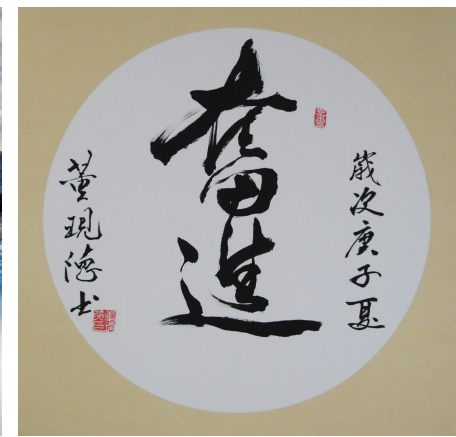 歲次庚子夏
奮進
董現德书